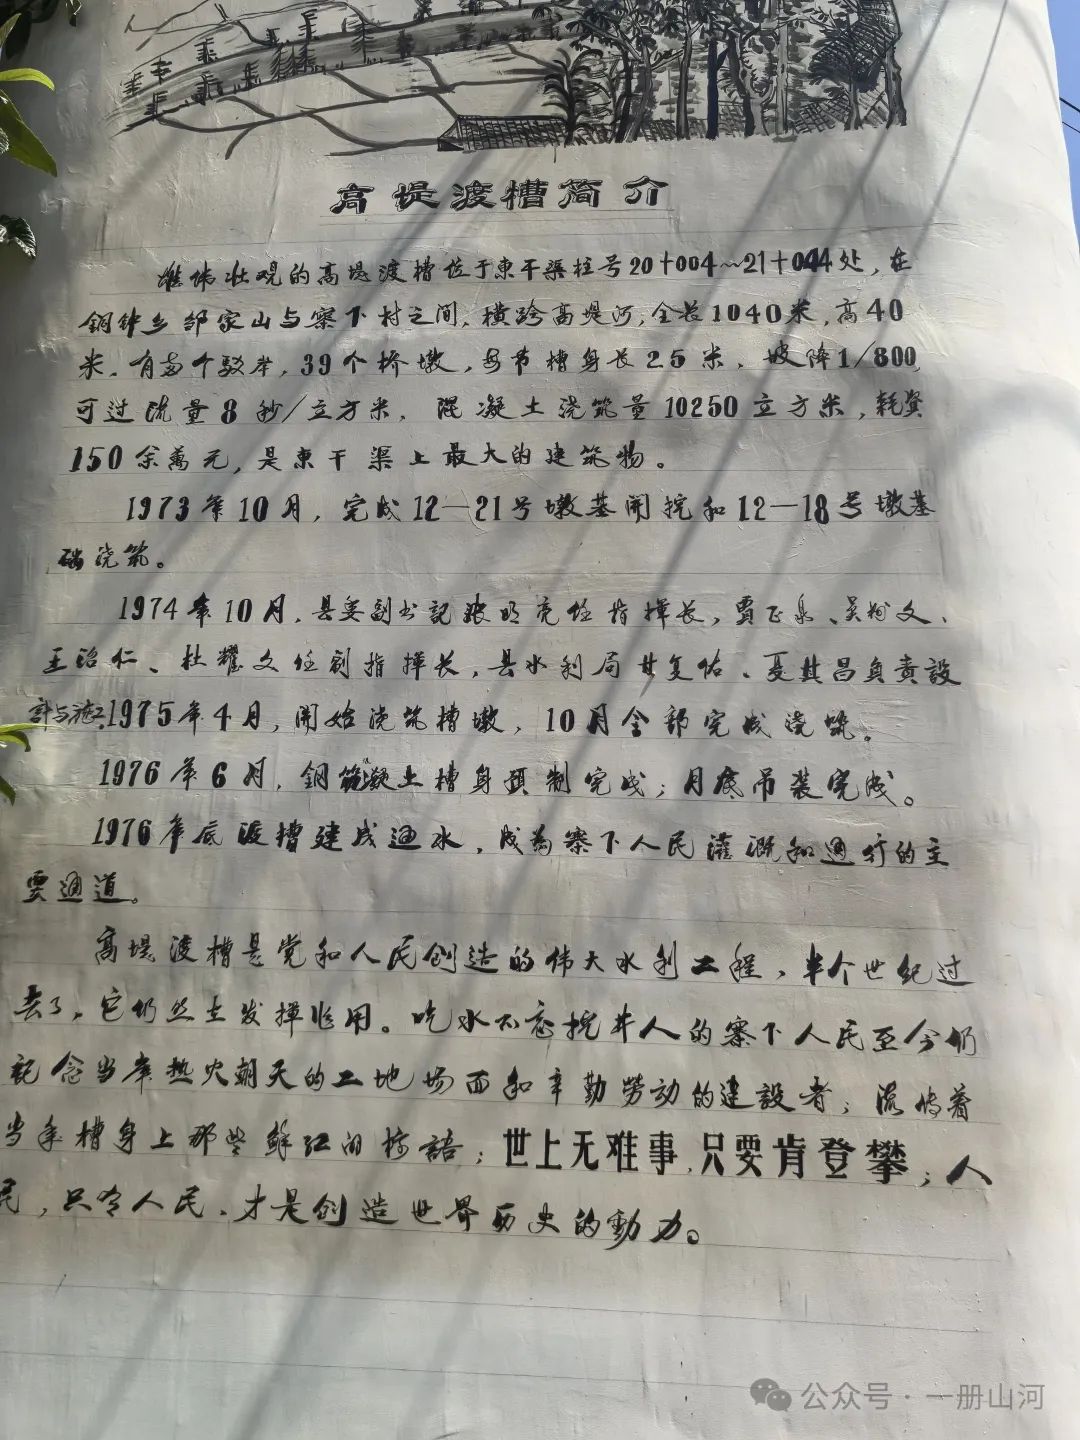 高堤渡槽简介
雄伟壮观的高堤渡槽位于東干渠桩号20+004~21+044处,在
铜钟乡邹家山与寨下村之间,横跨高堤河,全长1040米,高40
米.有两个驳岸,39个桥墩,每节槽身长25米,坡降1/800,
可过流量8秒/立方米,混凝土浇筑量10250立方米,耗资
150余萬元,是東干渠上最大的建筑物。
1973年10月,完成12—21号墩基開挖和12—18号墩基
础浇筑。
1974年10月,县委副书記 明亮任指揮长,賈正泉、吴 文、
王治仁、杜耀文任副指揮长,县水利局甘复佑、夏其昌負責設
計与施工
1975年4月,開始浇筑槽墩,10月全部完成浇筑。
1976年6月,鋼筋混凝土槽身預制完成;月底吊装完成。
1976年底渡槽建成通水,成為寨下人民灌溉和通行的主
要通道。
高堤渡槽是党和人民创造的伟大水利工程,半个世纪过
去了,它仍然在发揮作用。吃水不忘挖井人的寨下人民至今仍
記念当年热火朝天的工地场面和辛勤勞动的建設者;流传着
当年槽身上那些鲜红的标語;世上无难事,只要肯登攀;人
民,只有人民,才是创造世界历史的動力。
公众号·一册山河